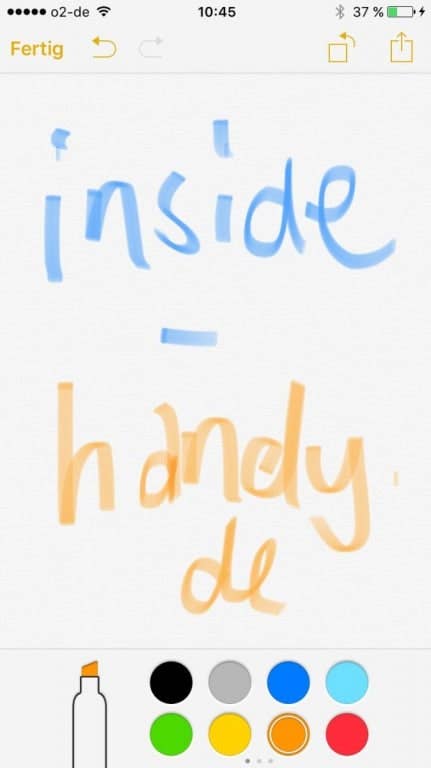 o2-de 10:45 37 %
Fertig
inside
-
handy.
de